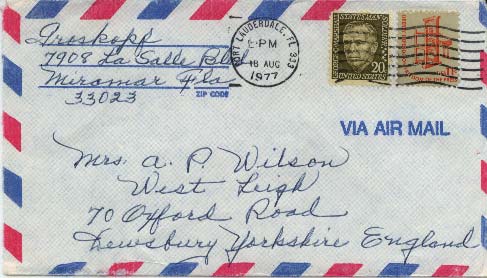 Groskopf
7908 La Salle Blvd
Miramar Fla
33023
ZIP CODE
FORT LAUDERDALE, FL 333
PM
18 AUG
1977
STATESMAN
UNITED STATES
20
VIA AIR MAIL
Mrs. A. P. Wilson
West Leigh
70 Oxford Road
Dewsbury Yorkshire England